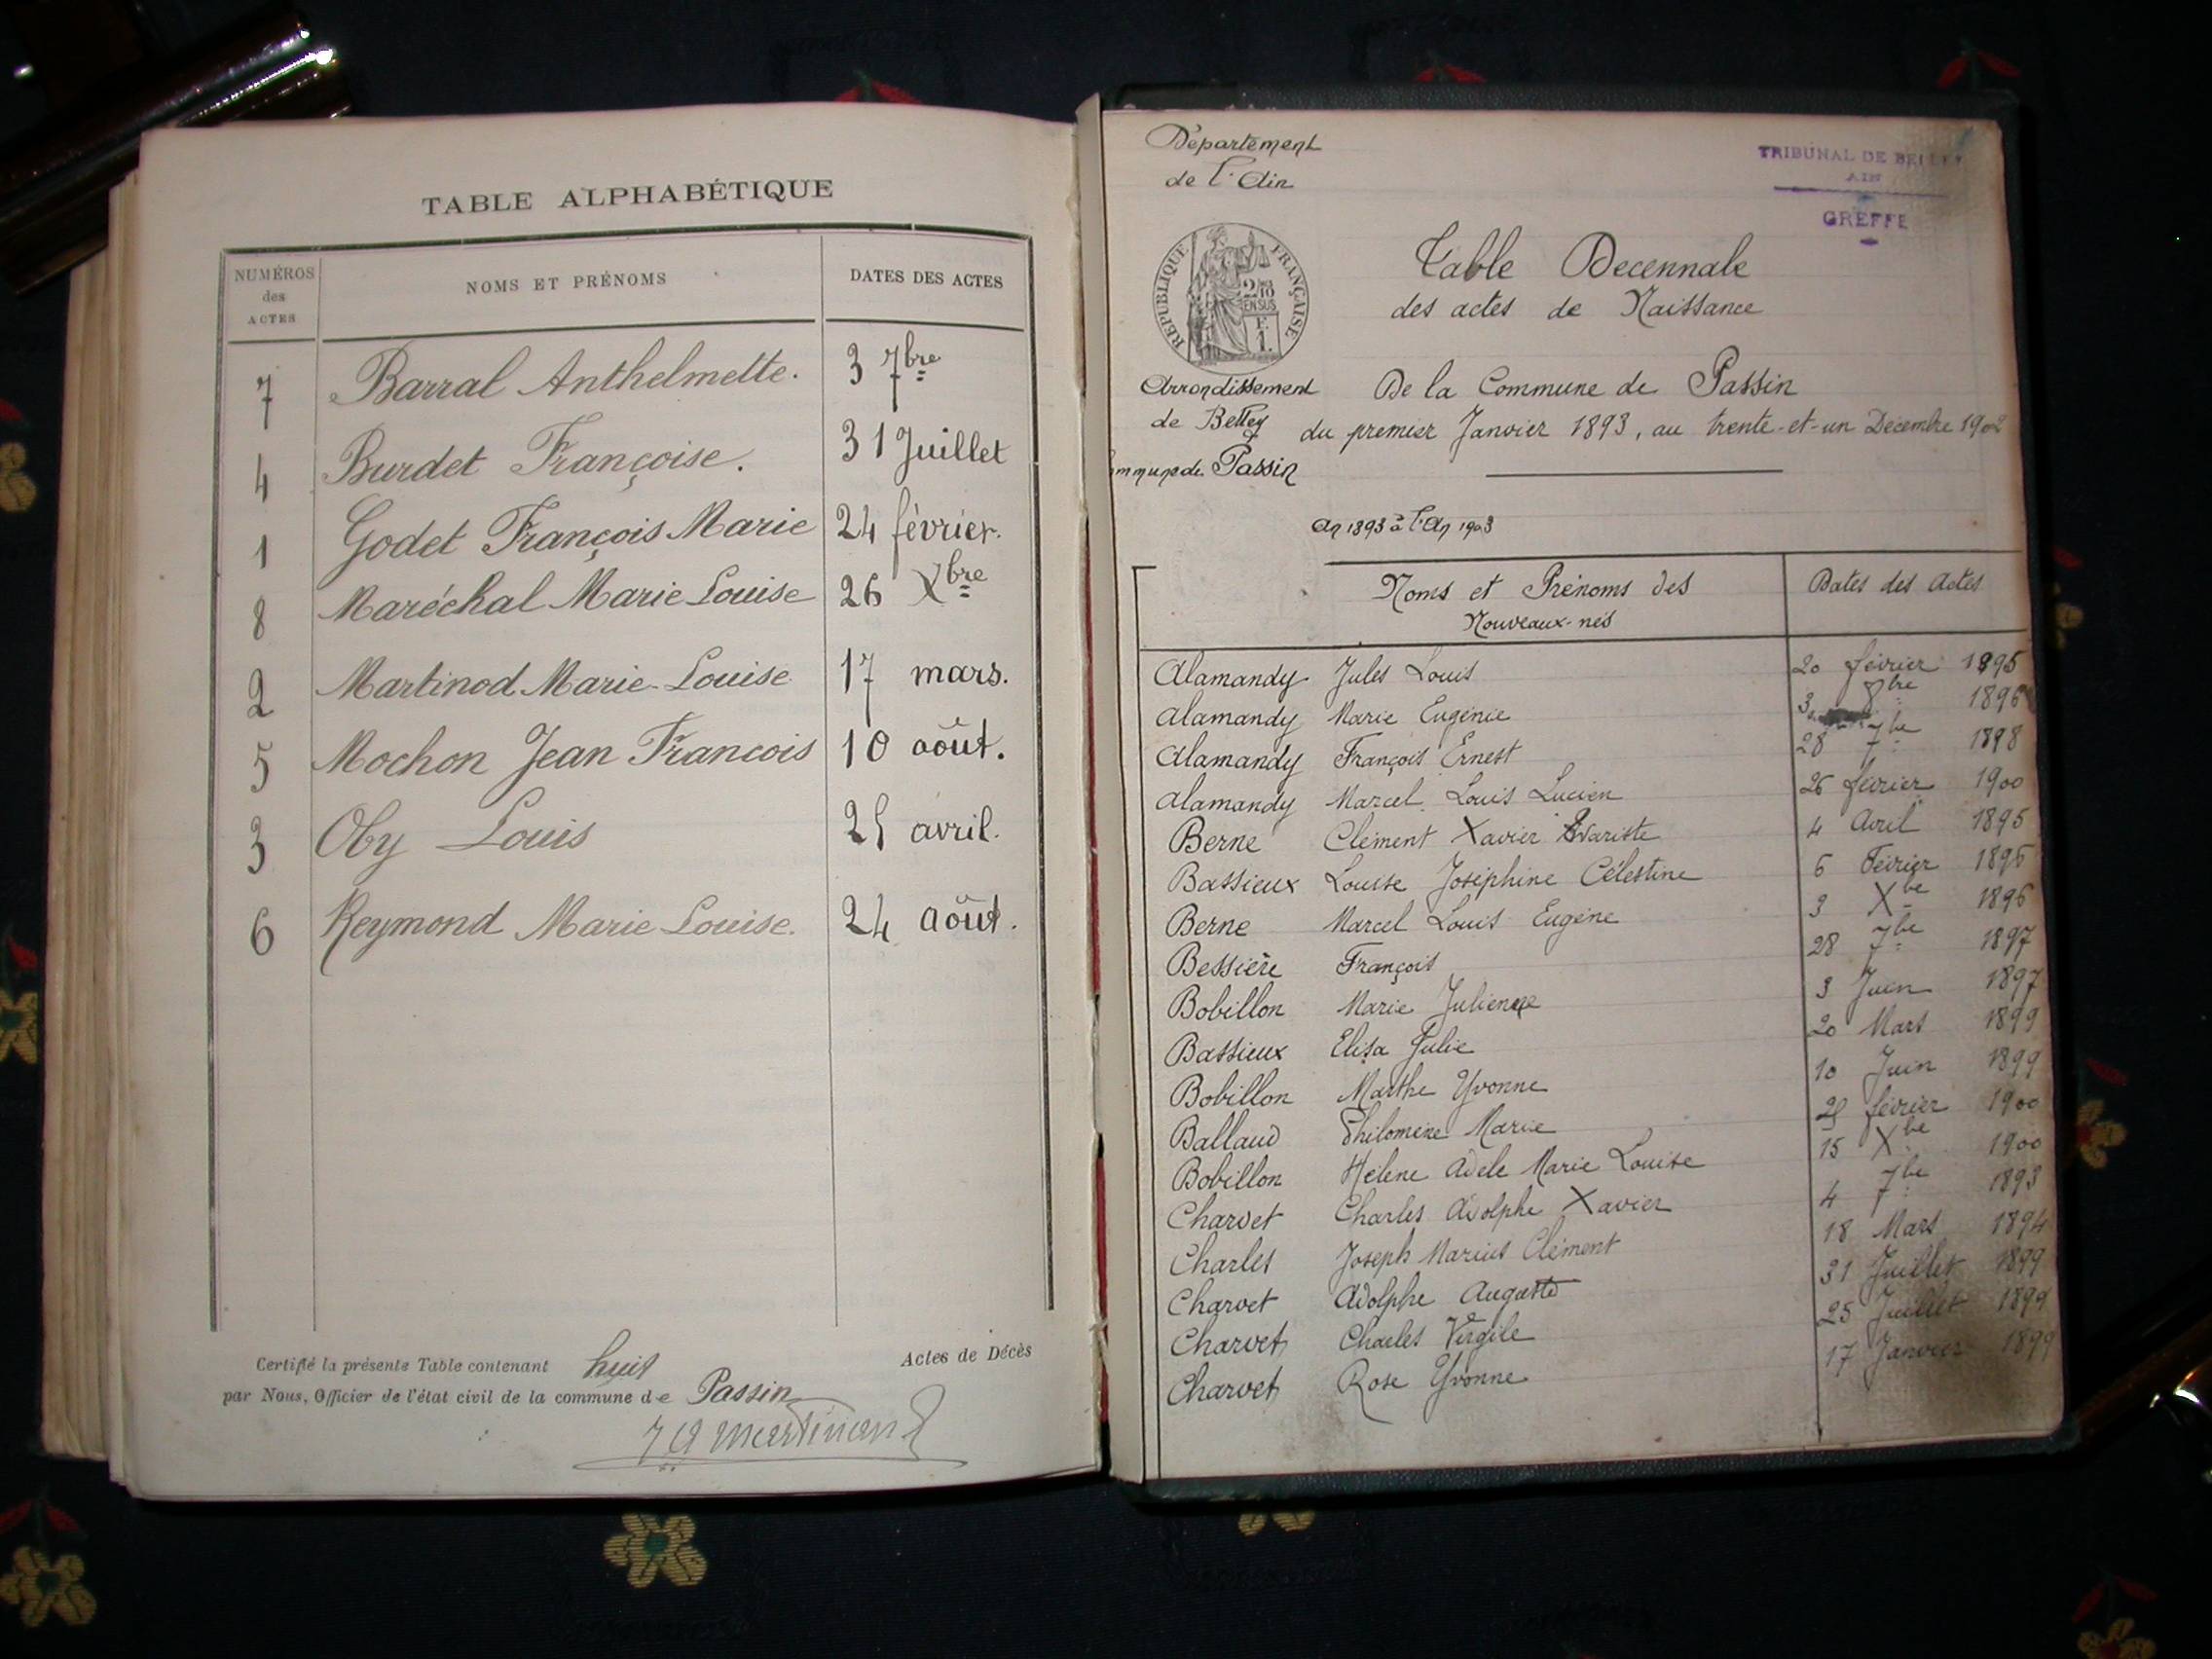 TABLE ALPHABÉTIQUE
NUMÉROS des ACTES NOMS ET PRÉNOMS DATES DES ACTES
7 Barral Anthelmette. 3 7bre
4 Burdet Françoise. 31 Juillet
1 Godet François Marie 24 février.
8 Maréchal Marie Louise 26 Xbre
2 Martinod Marie-Louise 17 mars.
5 Mochon Jean Francois 10 août.
3 Oby Louis 25 avril.
6 Reymond Marie-Louise. 24 août.
Certifié la présente Table contenant huit Actes de Décès
par Nous, Officier de l'état civil de la commune de Passin
Departement
de l'Ain
TRIBUNAL DE BELLEY
AIN
GREFFE
RÉPUBLIQUE FRANÇAISE
2/10
EN SUS
F.
1.
Table Decennale
des actes de Naissance
Arrondissement
de Belley
De la Commune de Passin
du premier Janvier 1893, au trente-et-un Décembre 1902
mmune de Passin
An 1893 à l'An 1903
Noms et Prénoms des Nouveaux-nés Dates des Actes
Alamandy Jules Louis 20 février 1895
Alamandy Marie Eugénie 3 8bre 1896
Alamandy François Ernest 28 7be 1898
Alamandy Marcel Louis Lucien 26 février 1900
Berne Clément Xavier Evariste 4 Avril 1895
Bassieux Louise Joséphine Célestine 6 Février 1895
Berne Marcel Louis Eugène 3 Xbe 1896
Bessière François 28 7be 1897
Bobillon Marie Julienne 3 Juin 1897
Bassieux Elisa Julie 20 Mars 1899
Bobillon Marthe Yvonne 10 Juin 1899
Ballaud Philomène Marie 25 février 1900
Bobillon Hélène Adele Marie Louise 15 Xbe 1900
Charvet Charles Adolphe Xavier 4 7be 1893
Charles Joseph Marius Clément 18 Mars 1894
Charvet Adolphe Auguste 31 Juillet 1899
Charvet Charles Virgile 25 Juillet 1899
Charvet Rose Yvonne 17 Janvier 1899